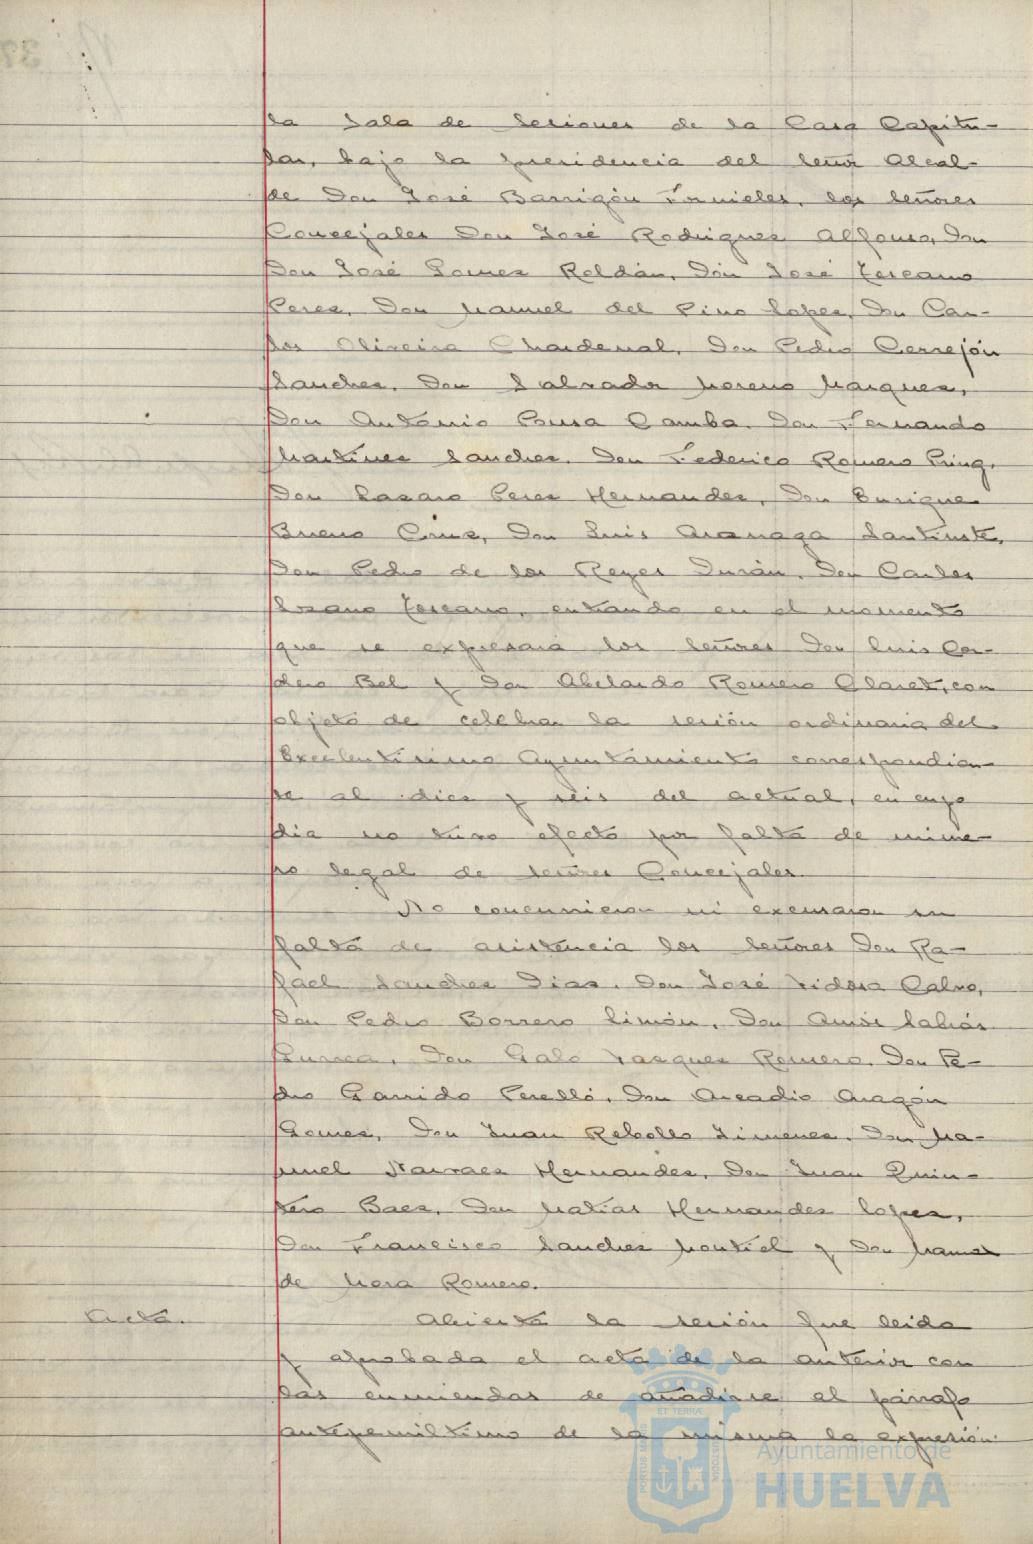 la Sala de Sesiones de la Casa Capitu-
lar, bajo la presidencia del señor Alcal-
de Don José Barrigón Fornieles, los señores
Concejales Don José Rodriguez Alfonso, Don
Don José Gomez Roldán, Don José Toscano
Perez, Don Manuel del Pino Lopez, Don Car-
los Oliveira Chardenal, Don Pedro Cerrejón
Sanchez, Don Salvador Moreno Marquez,
Don Antonio Pousa Camba, Don Fernando
Martinez Sanchez, Don Federico Romero
Don Lazaro Perez Hernandez, Don Enrique
Bueno Cruz, Don Luis Aranaga
Don Pedro de los Reyes Durán, Don Carlos
Lozano Toscano, entrando en el momento
que se expresará los señores Don Luis Cor-
dero Bel y Don Abelardo Romero Claret, con
objeto de celebrar la sesión ordinaria del
Excelentisimo Ayuntamiento correspondien-
te al diez y seis del actual, en cuyo
dia no tuvo efecto por falta de nume-
ro legal de señores Concejales.
No concurrieron ni excusaron su
falta de asistencia los señores Don Ra-
fael Sanchez Diaz, Don José Vidosa Calvo,
Don Pedro Borrero Limón, Don Amós Sabrás
Gurrea, Don Galo Vazquez Romero, Don Pe-
dro Garrido Perelló, Don Arcadio Aragón
Gomez, Don Juan Rebollo Jimenez, Don Ma-
nuel Narvaez Hernandez, Don Juan Quin-
tero Baez, Don Matias Hernandez Lopez,
Don Francisco Sanchez Montiel y Don Manuel
de Mora Romero.
Acta.
Abierta la sesión fue leida
y aprobada el acta de la anterior con
las enmiendas de añadirse al párrafo
antepenultimo de la misma la expresión:
Ayuntamiento de
HUELVA